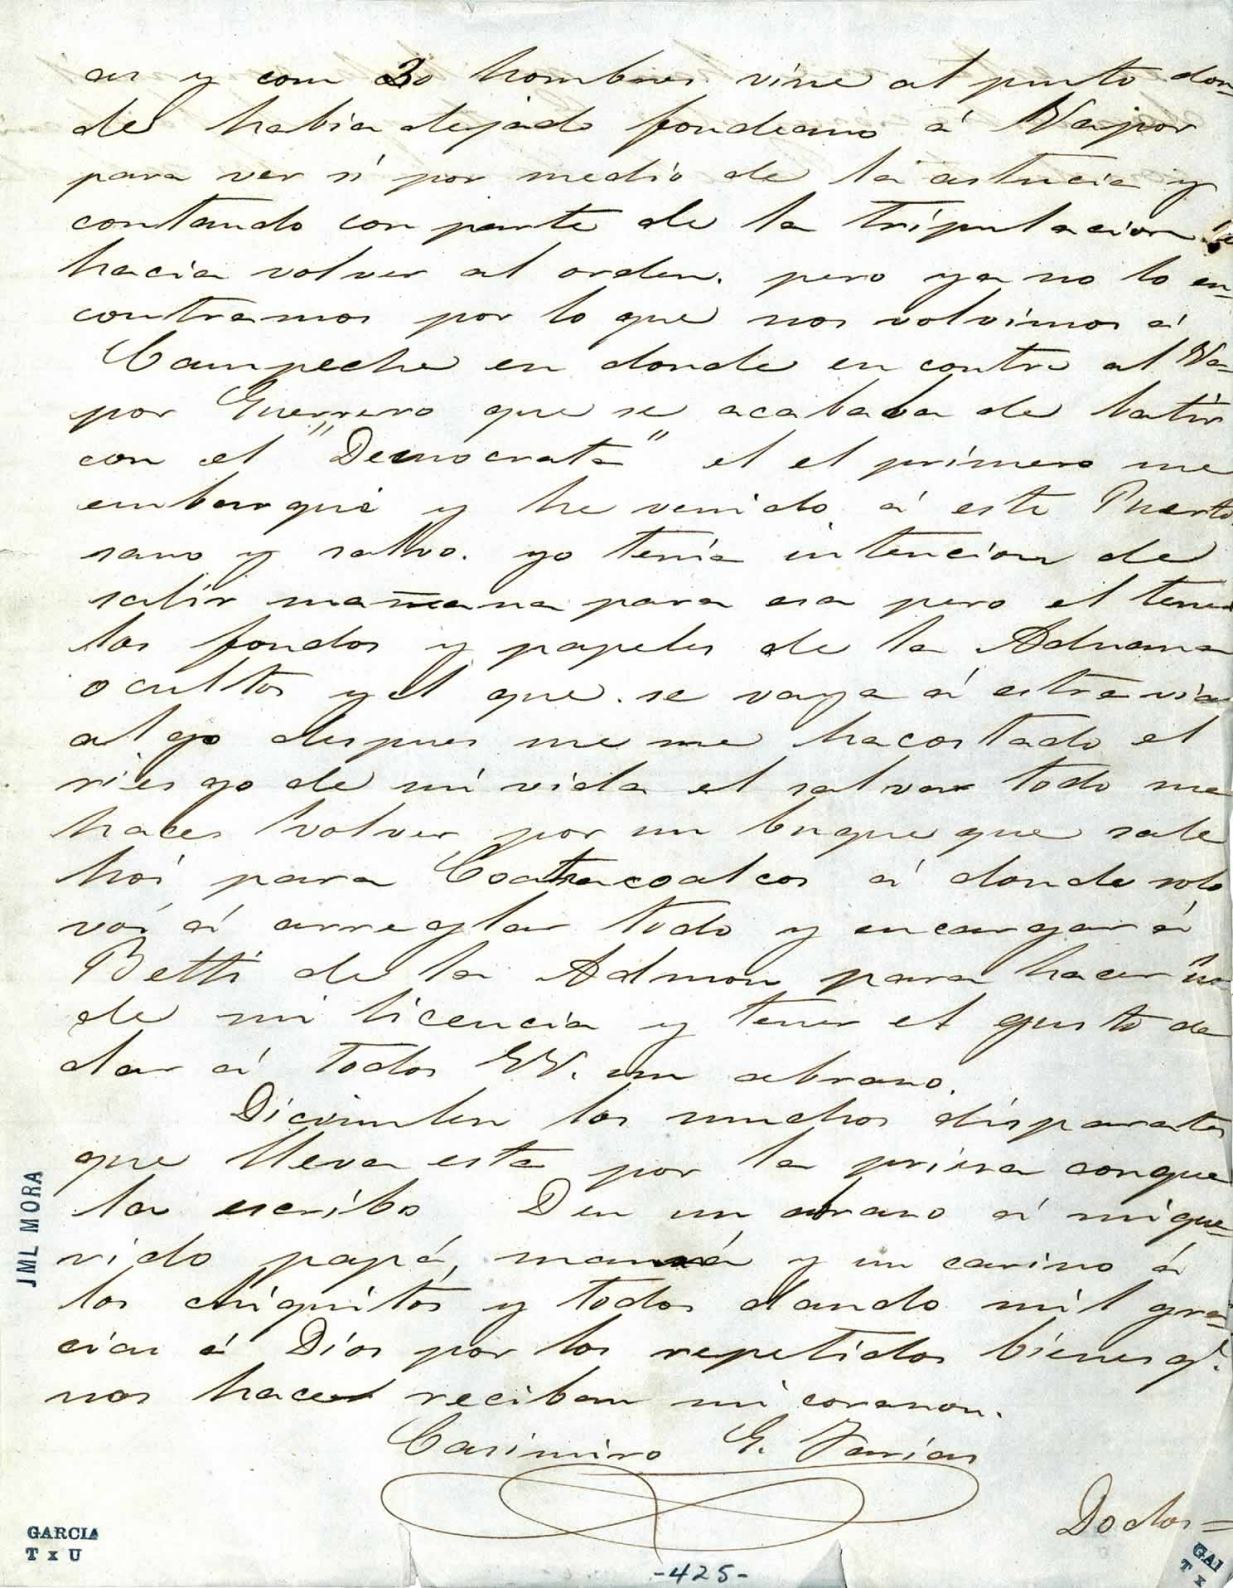 as y con 30 hombres vine al punto don-
de habia dejado fondeano á Vapor
para ver si por medio de la astucia y
contando con parte de la tripulacion lo
hacia volver al orden. pero ya no lo en-
contramos por lo que nos volvimos á
Campeche en donde en contre al Va-
por Guerrero que se acababa de batir
con el "Democrata" el el primero me
embarqué y he venido á este Puerto
sano y salvo. yo tenia intencion de
salir mañana para esa pero el tener
los fondos y papeles de la Aduana
ocultos y el que se vaya á estravia
algo despues me me hacostado el
riesgo de mi vida el salvar todo me
haces volver por un buque que sale
hoi para Coatzacoalcos á donde solo
voi á arreglar todo y encargar á
Betti de la Admon para hacer uso
de mi licencia y tener el gusto de
dar á todos VV. un abrazo.
Dicimulen los muchos disparates
que lleva esta por la priesa conque
la escribo Den un abrazo á mi que-
rido papá, mamá y un cariño á
los chiquitos y todos dando mil gra-
cias á Dios por los repetidos bienes q.
nos hace reciban mi corazon.
Casimiro G. Farias
Doctor=
JML MORA
GARCIA
T x U
-425-
GAR
T x